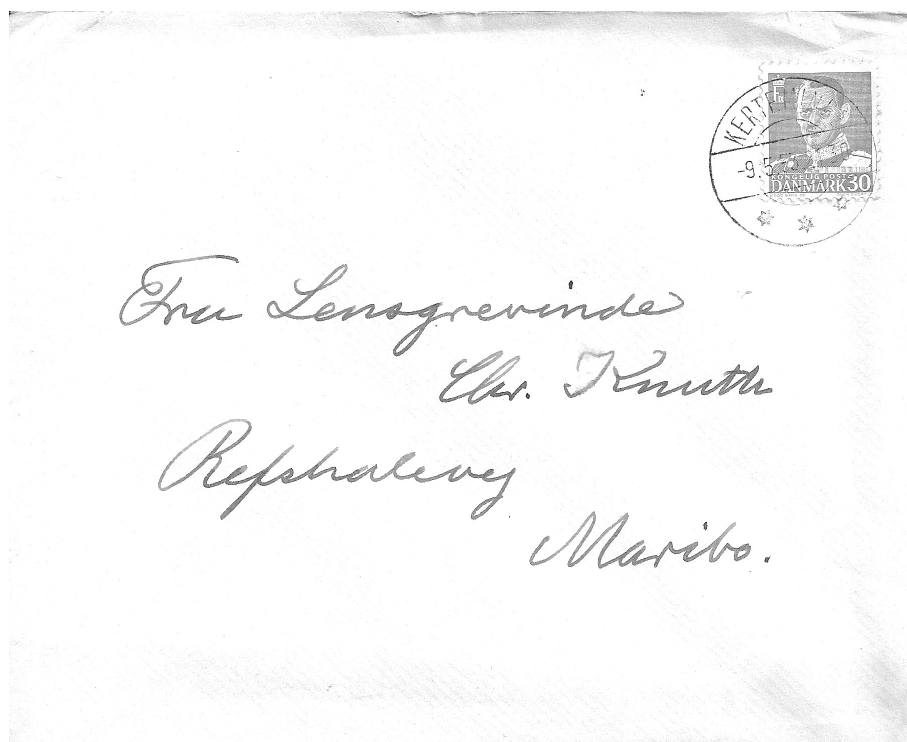 KERTE
-9.5.
KONGELIG POST
DANMARK 30
Fru Lensgrevinde
Chr. Knuth
Refshalevej
Maribo.